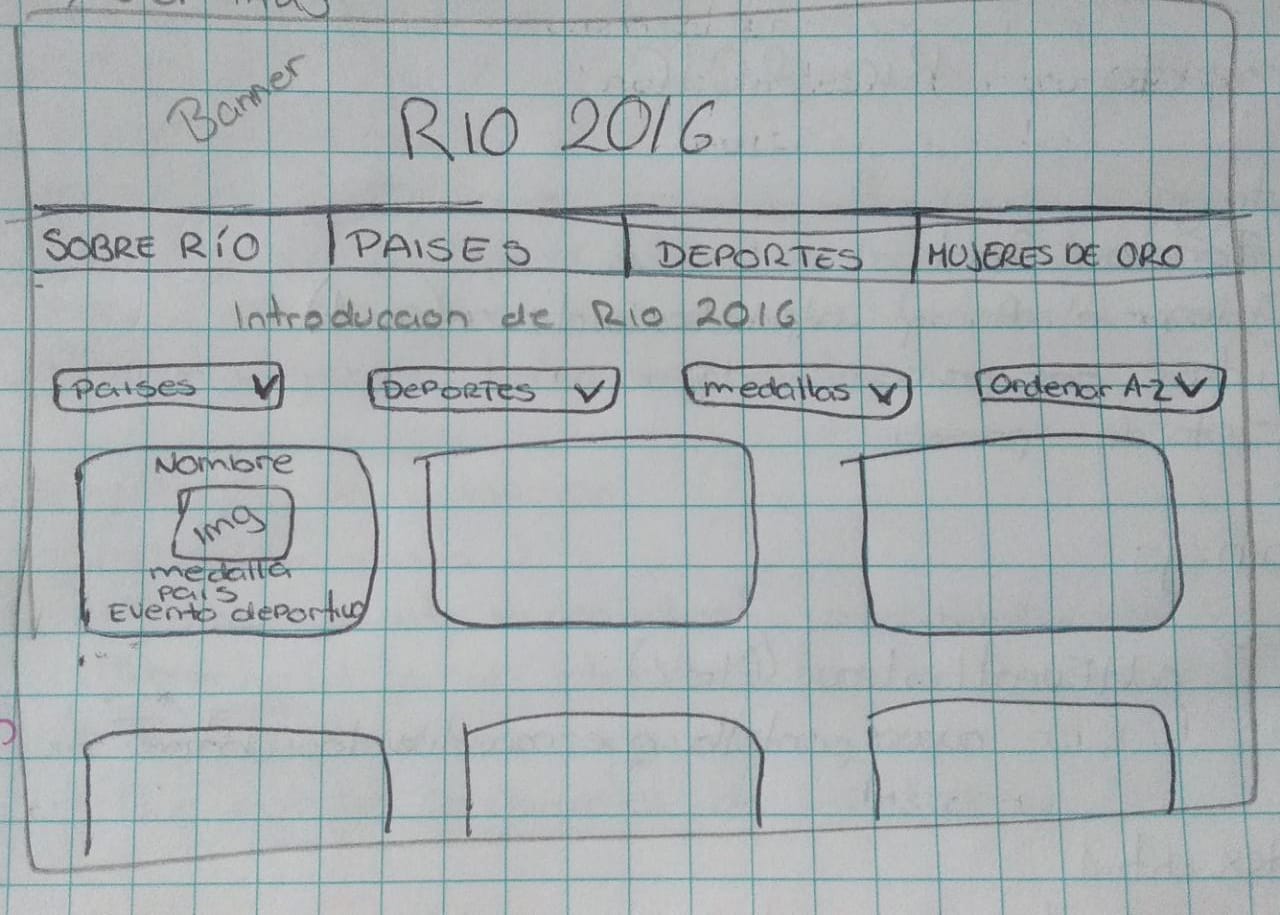 Banner
RIO 2016
SOBRE RÍO
PAISES
DEPORTES
MUJERES DE ORO
Introduccion de Rio 2016
Paises
DEPORTES
medallas
Ordenar A-Z
Nombre
img
medalla
pais
Evento deportivo